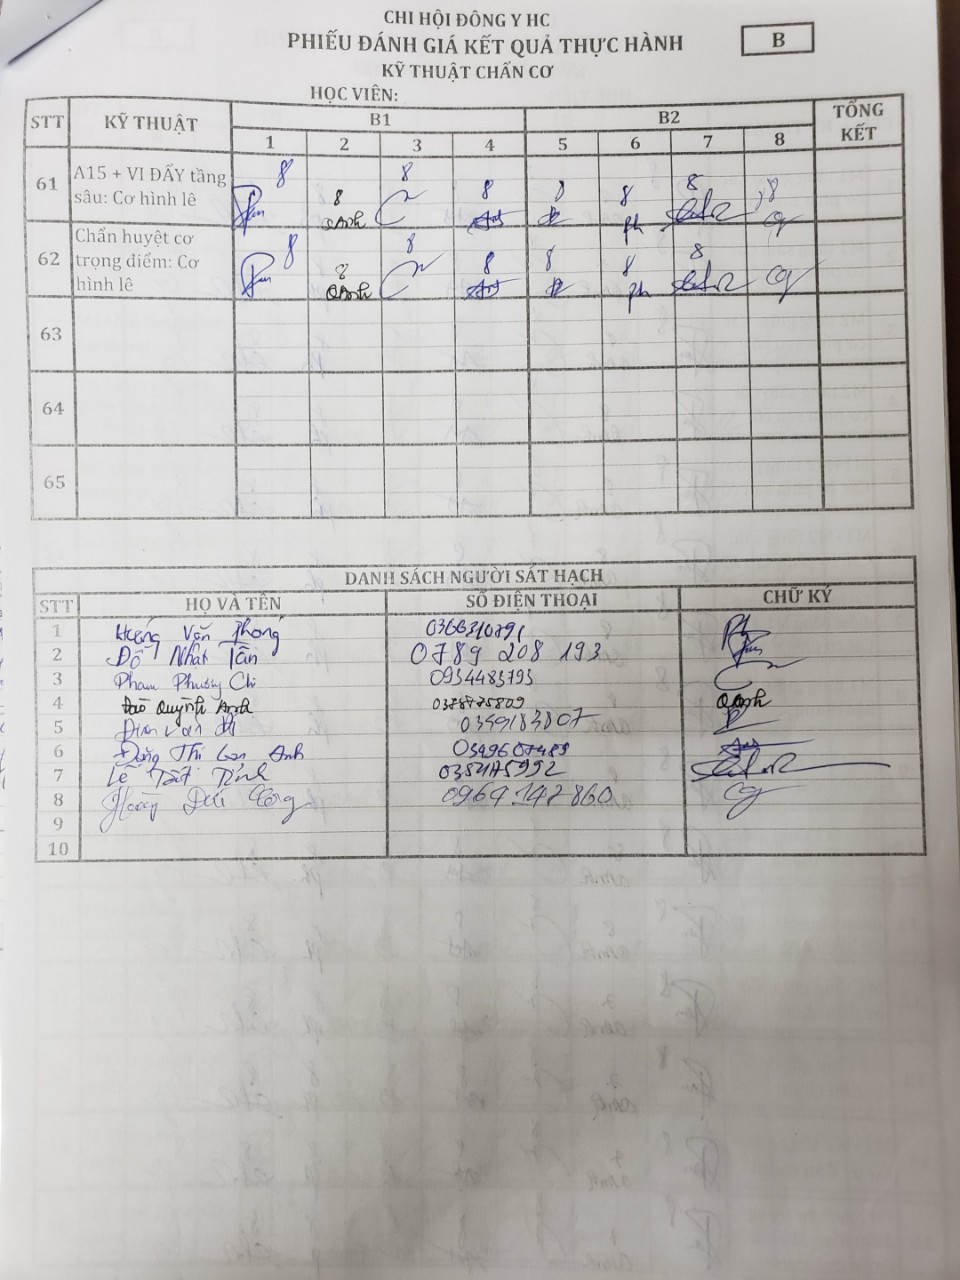 CHI HỘI ĐÔNG Y HC
PHIẾU ĐÁNH GIÁ KẾT QUẢ THỰC HÀNH
B
KỸ THUẬT CHẨN CƠ
HỌC VIÊN:
STT KỸ THUẬT B1 B2 TỔNG KẾT
1 2 3 4 5 6 7 8
61 A15 + VI ĐẨY tầng sâu: Cơ hình lê 8 8 8 8 8 8 8 8
QAnh ph
62 Chẩn huyệt cơ trọng điểm: Cơ hình lê 8 8 8 8 8 8 8
QAnh ph
63
64
65
DANH SÁCH NGƯỜI SÁT HẠCH
STT HỌ VÀ TÊN SỐ ĐIỆN THOẠI CHỮ KÝ
1 Văn Phong
2 Đỗ Nhật Tân 0789 208 193
3 Phạm Phương Chi 0934483793
4 Đào Quỳnh Anh QAnh
5 0349183807
6 Đặng Thị Lan Anh
7 Lê Tất
8 Hoàng 0969 147 860
9
10